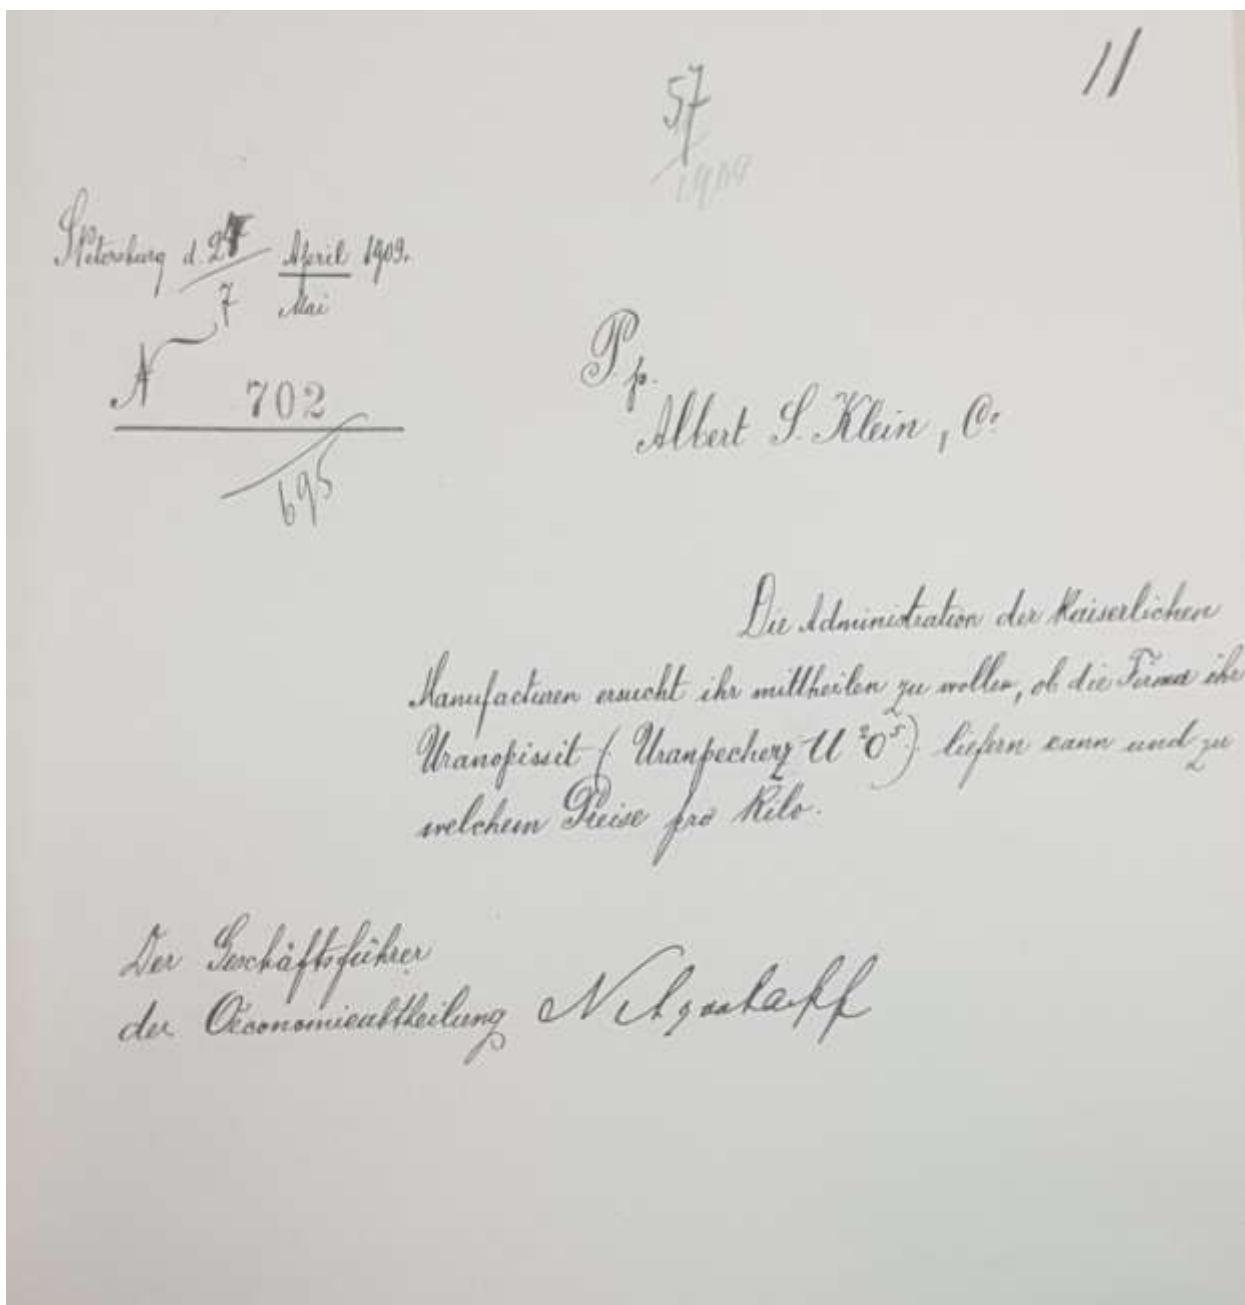 11
57
1909
St Petersburg d. 24 April 1909.
7 Mai
N 702
695
P. p.
Albert S. Klein, Co
Die Administration der Kaiserlichen
Manufacturen ersucht ihr mittheilen zu wollen, ob die Firma ihr
Uranopissit (Uranpecherz U²O⁵) liefern kann und zu
welchem Preise pro Kilo.
Der Geschäftsführer
der Oeconomieabtheilung